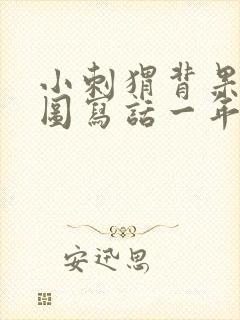 小刺猬背果
圖寫話一年
安迅思